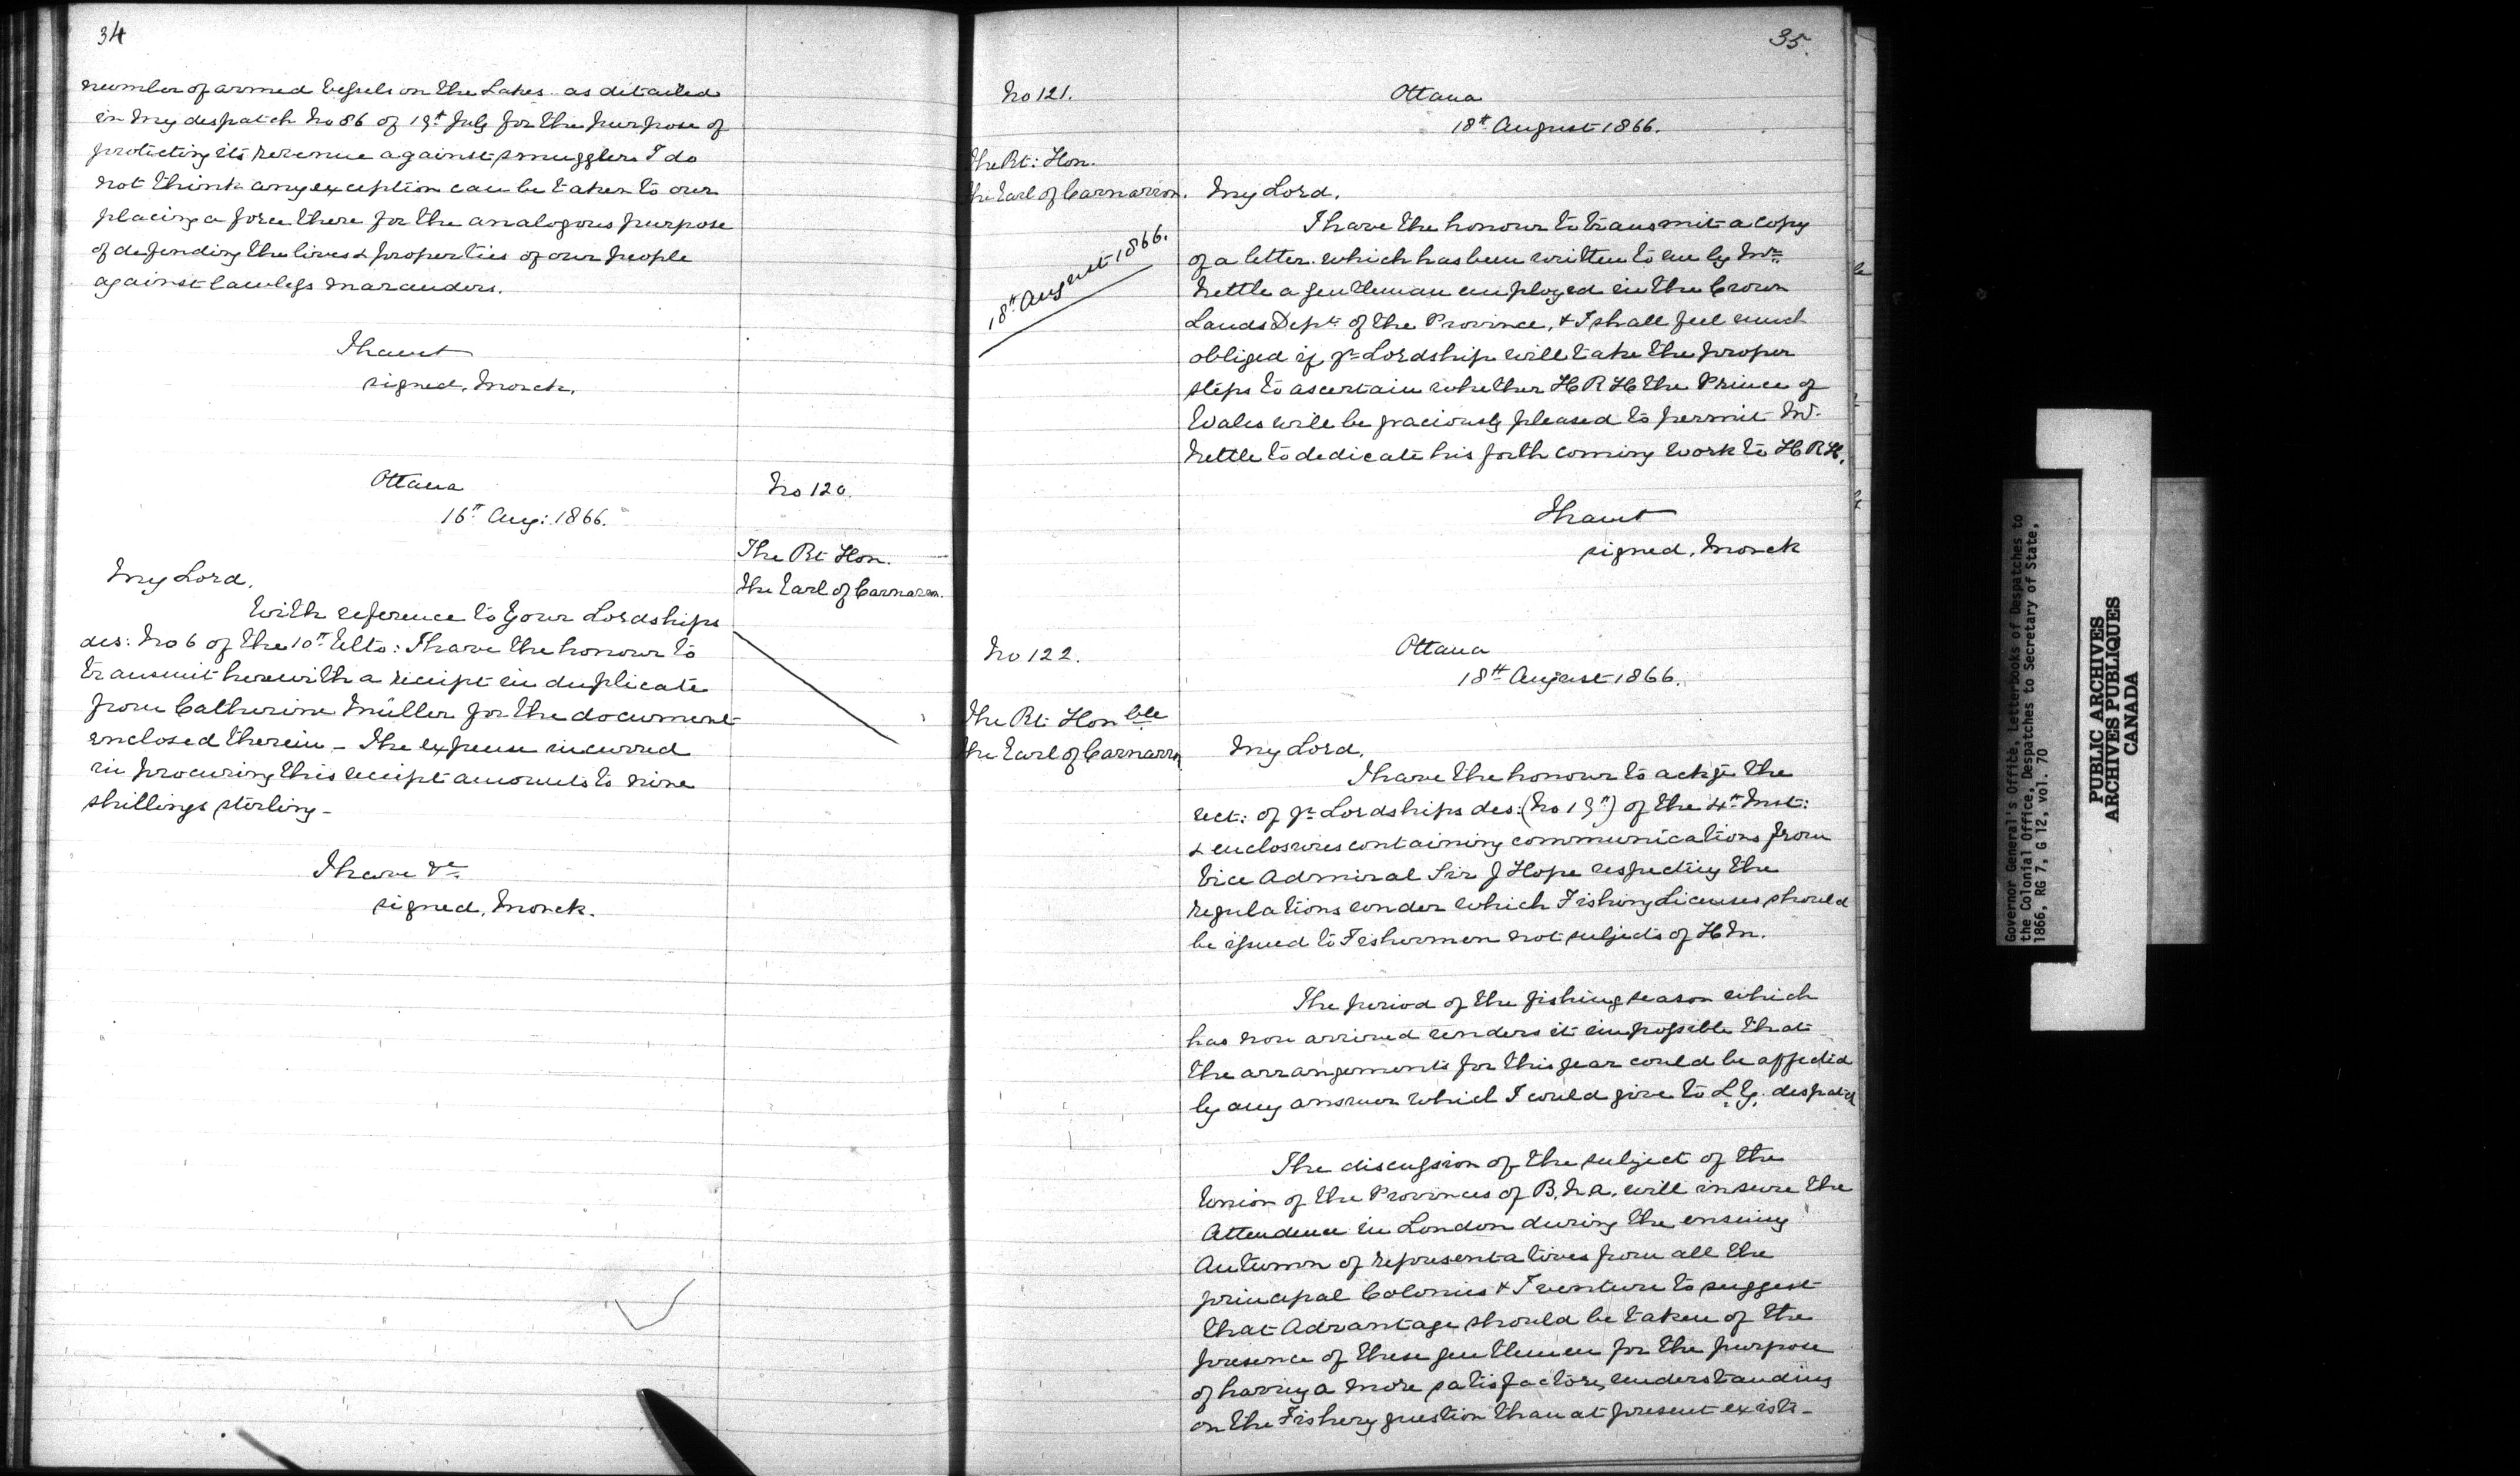 34
number of armed vessels on the Lakes as detailed
in my despatch No 86 of 19th July for the purpose of
protecting its revenue against smugglers I do
not think any exception can be taken to our
placing a force there for the analogous purpose
of defending the lives & properties of our people
against lawless marauders.
I have &c
signed, Monck.
Ottawa
16th Aug: 1866.
No 120.
The Rt Hon.
the Earl of Carnarvon.
My Lord,
With reference to Your Lordships
des: No 6 of the 10th Ulto: I have the honour to
transmit herewith a receipt in duplicate
from Catherine Müller for the document
enclosed therein – The expense incurred
in procuring this receipt amounts to nine
shillings sterling –
I have &c
signed, Monck.
35.
No 121.
Ottawa
18th August 1866.
The Rt: Hon.
the Earl of Carnarvon.
18th August 1866.
My Lord,
I have the honour to transmit a copy
of a letter which has been written to me by Mr
Nettle a gentleman employed in the Crown
Lands Dept of the Province, & I shall feel much
obliged if yr Lordship will take the proper
steps to ascertain whether H R H the Prince of
Wales will be graciously pleased to permit Mr
Nettle to dedicate his forth coming work to H R H.
I have &c
signed, Monck
No 122.
Ottawa
18th August 1866.
The Rt Honble
the Earl of Carnarvon
My Lord,
I have the honour to ackge the
rect: of yr Lordships des: (No 19th) of the 4th Inst:
& enclosures containing communications from
Vice Admiral Sir J Hope respecting the
regulations under which Fishing Licenses should
be issued to Fishermen not subjects of H M.
The period of the fishing season which
has now arrived renders it impossible that
the arrangements for this year could be affected
by any answer which I could give to L. Y. despatch
The discussion of the subject of the
Union of the Provinces of B. N. A. will insure the
Attendence in London during the ensuing
Autumn of representatives from all the
principal Colonies & I venture to suggest
that Advantage should be taken of the
presence of these gentlemen for the purpose
of having a more satisfactory understanding
on the Fishery question than at present exists –
Governor General's Office, Letterbooks of Despatches to
the Colonial Office, Despatches to Secretary of State,
1866, RG 7, G 12, vol. 70
PUBLIC ARCHIVES
ARCHIVES PUBLIQUES
CANADA